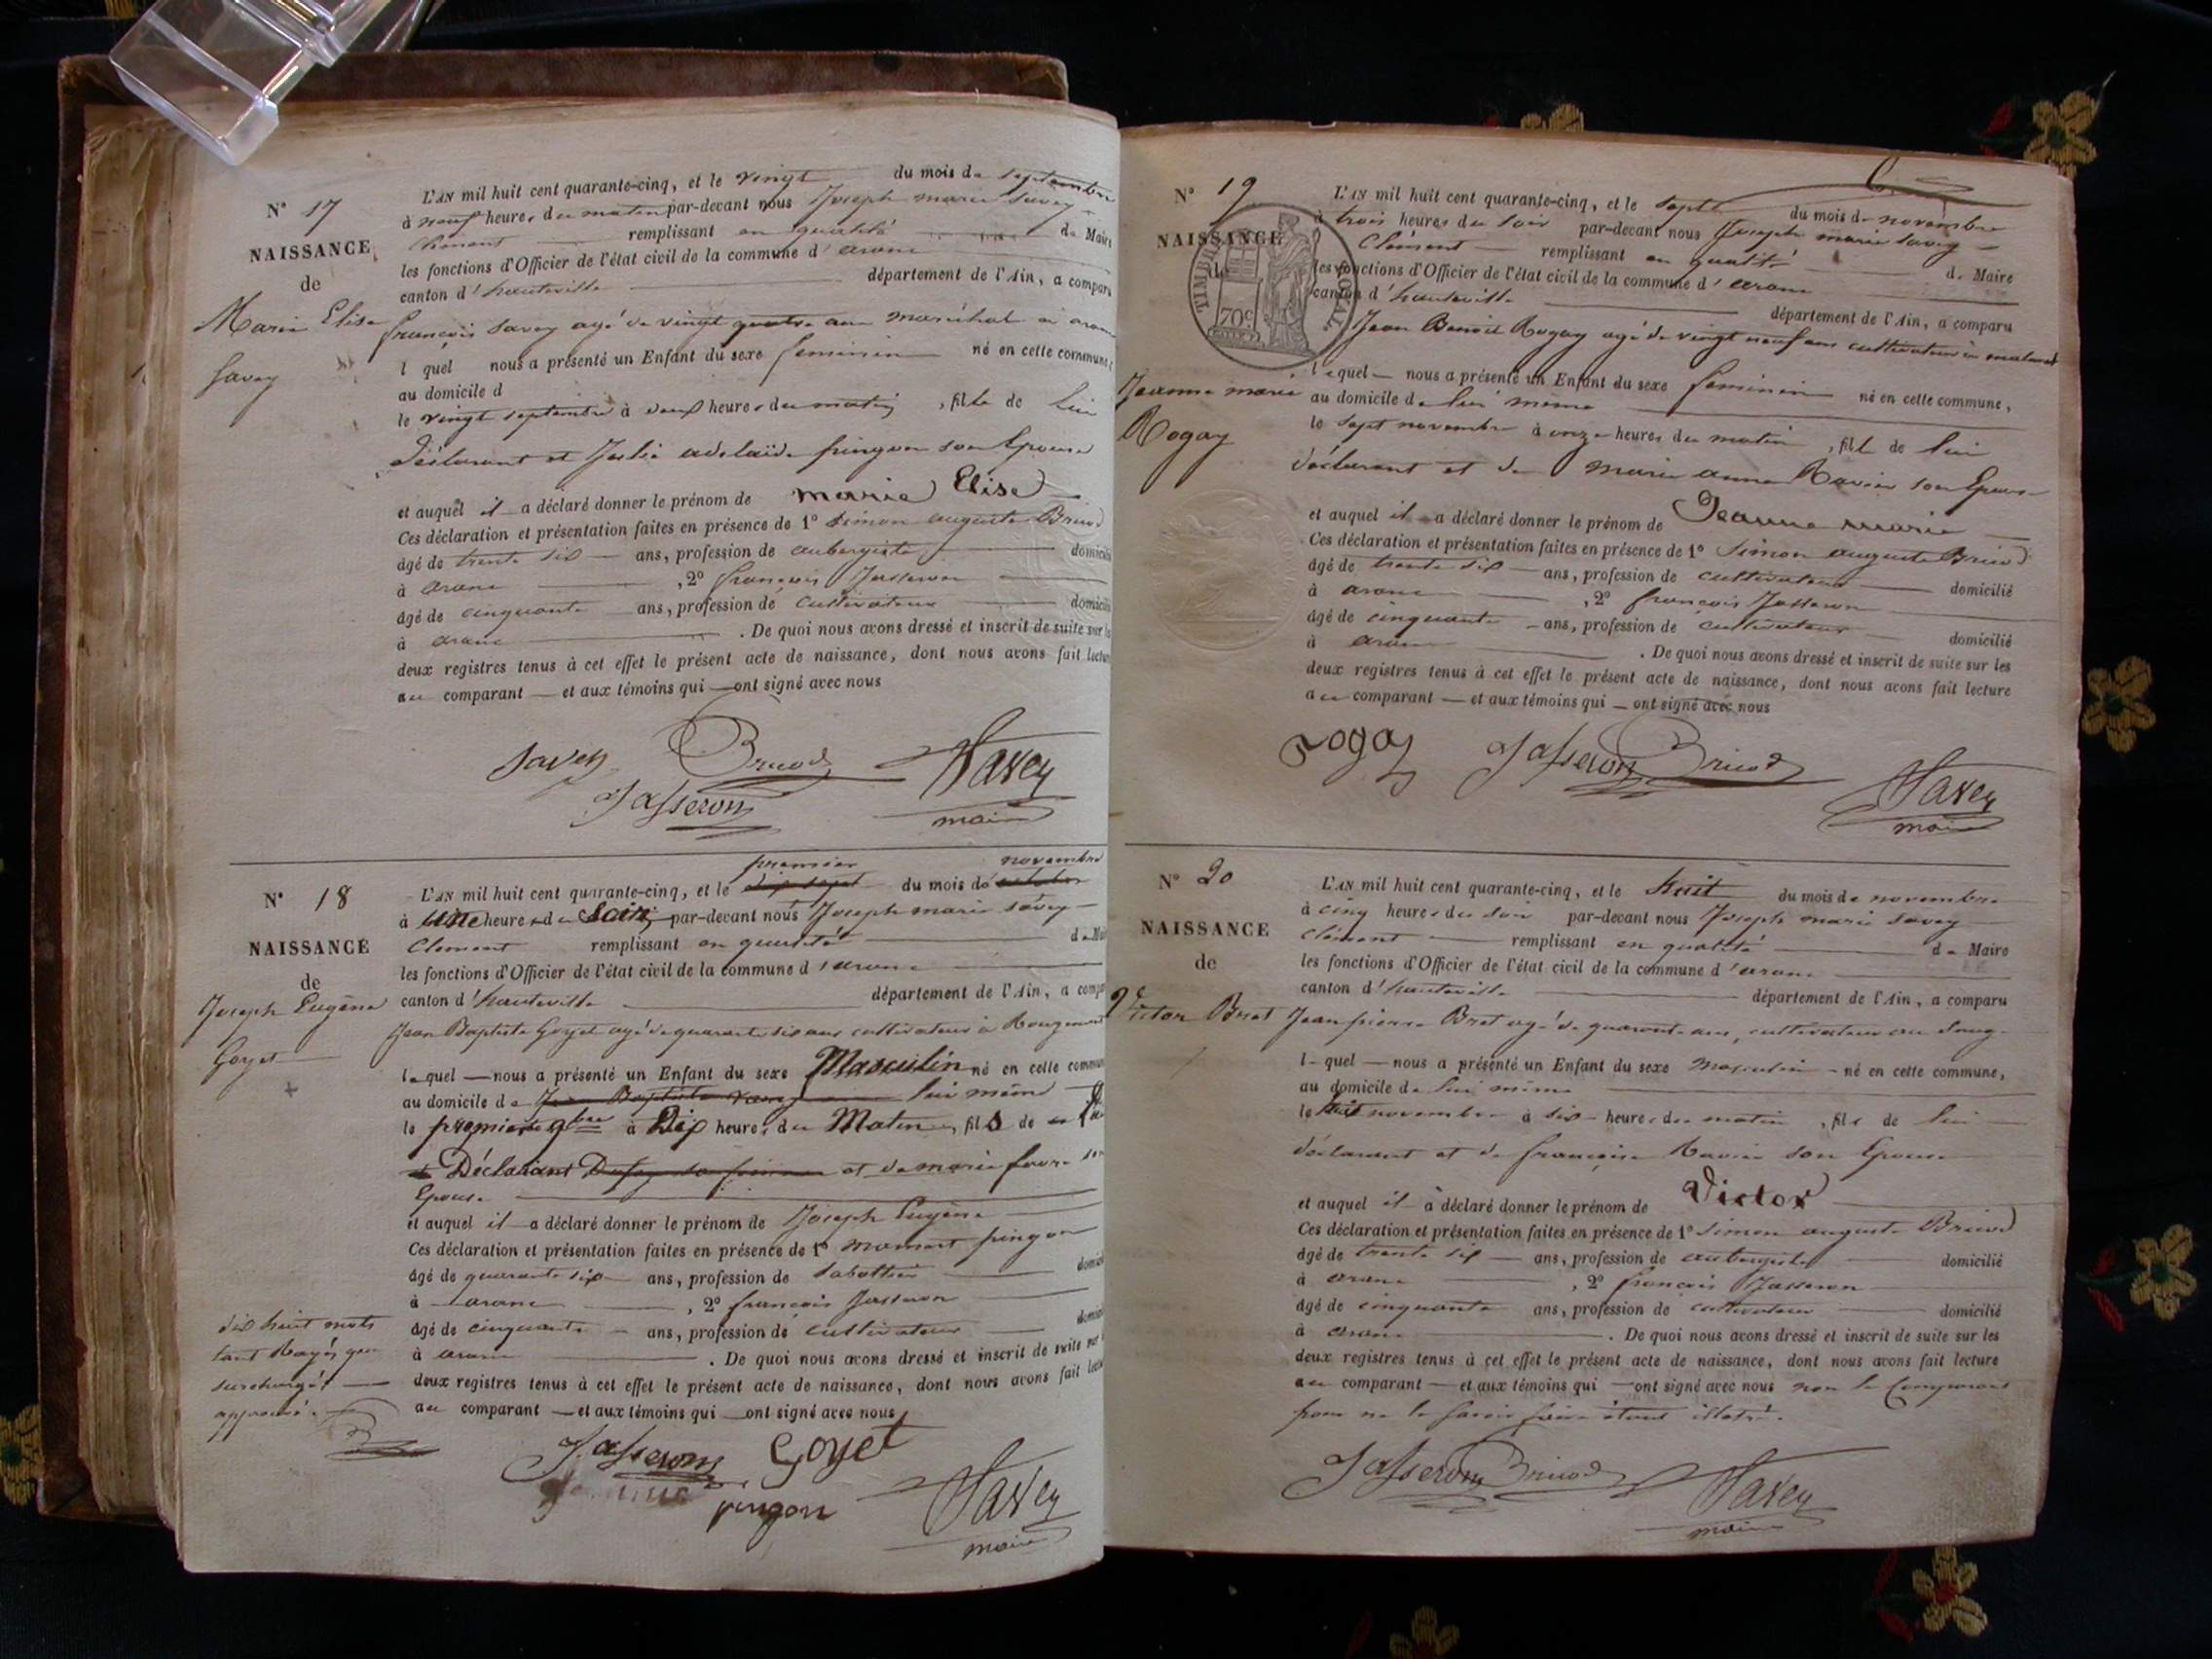 N° 17
NAISSANCE
de
Marie Elise
Savey
L'AN mil huit cent quarante-cinq, et le vingt du mois de septembre
à neuf heures du matin par-devant nous Joseph marie Savey
Clément remplissant en qualité de Maire
les fonctions d'Officier de l'état civil de la commune d'aranc
canton d'hauteville département de l'Ain, a comparu
françois Savey agé de vingt quatre ans maréchal à aranc
l quel nous a présenté un Enfant du sexe feminin né en cette commune
au domicile d
le vingt septembre à deux heures du matin, fille de lui
déclarant et Julie adelaïde pingon son Epouse
et auquel il a déclaré donner le prénom de marie Elise
Ces déclaration et présentation faites en présence de 1° Simon auguste Bricod
âgé de trente six ans, profession de aubergiste domicilié
à aranc , 2° françois Jasseron
âgé de cinquante ans, profession de cultivateur domicilié
à aranc . De quoi nous avons dressé et inscrit de suite sur les
deux registres tenus à cet effet le présent acte de naissance, dont nous avons fait lecture
au comparant et aux témoins qui ont signé avec nous
Savey Bricod Savey
Jasseron maire
N° 18
NAISSANCE
de
Joseph Eugène
Goyet
premier novembre
L'AN mil huit cent quarante-cinq, et le dix sept du mois de octobre
à une heure du Soir par-devant nous Joseph marie Savey
Clement remplissant en qualité de Maire
les fonctions d'Officier de l'état civil de la commune d'aranc
canton d'hauteville département de l'Ain, a comparu
Jean Baptiste Goyet agé de quarante six ans cultivateur à Rougemont
lequel nous a présenté un Enfant du sexe Masculin né en cette commune
au domicile de Jean Baptiste lui même
le premier 9bre à Dix heures du Matin, fils de
Déclarant et de marie favre son
Epouse
et auquel il a déclaré donner le prénom de Joseph Eugène
Ces déclaration et présentation faites en présence de 1° mamert pingon
âgé de quarante six ans, profession de Sabottier domicilié
à aranc , 2° francois Jasseron
âgé de cinquante ans, profession de cultivateur domicilié
à aranc . De quoi nous avons dressé et inscrit de suite sur les
deux registres tenus à cet effet le présent acte de naissance, dont nous avons fait lecture
au comparant et aux témoins qui ont signé avec nous
dix huit mots
tant Rayés que
surchargés
approuvé
Jasseron Goyet
pingon Savey
maire
N° 19
NAISSANCE
de
TIMBRE ROYAL
70c
Jeanne marie
Rogay
L'AN mil huit cent quarante-cinq, et le sept du mois de novembre
à trois heures du soir par-devant nous Joseph marie Savey
Clément remplissant en qualité de Maire
les fonctions d'Officier de l'état civil de la commune d'aranc
canton d'hauteville département de l'Ain, a comparu
Jean Benoit Rogay agé de vingt neuf ans cultivateur à
lequel nous a présenté un Enfant du sexe feminin né en cette commune,
au domicile de lui même
le sept novembre à onze heures du matin, fille de lui
déclarant et de marie anne Ravier son Epouse
et auquel il a déclaré donner le prénom de Jeanne marie
Ces déclaration et présentation faites en présence de 1° Simon auguste Bricod
âgé de trente six ans, profession de cultivateur domicilié
à aranc , 2° françois Jasseron
âgé de cinquante ans, profession de cultivateur domicilié
à aranc . De quoi nous avons dressé et inscrit de suite sur les
deux registres tenus à cet effet le présent acte de naissance, dont nous avons fait lecture
au comparant et aux témoins qui ont signé avec nous
rogay Jasseron Bricod Savey
maire
N° 20
NAISSANCE
de
Victor Bret
L'AN mil huit cent quarante-cinq, et le huit du mois de novembre
à cinq heures du soir par-devant nous Joseph marie Savey
Clément remplissant en qualité de Maire
les fonctions d'Officier de l'état civil de la commune d'aranc
canton d'hauteville département de l'Ain, a comparu
Jean pierre Bret agé de quarante ans, cultivateur au
lequel nous a présenté un Enfant du sexe masculin né en cette commune,
au domicile de lui même
le huit novembre à six heures du matin, fils de lui
déclarant et de françoise Ravier son Epouse
et auquel il a déclaré donner le prénom de Victor
Ces déclaration et présentation faites en présence de 1° Simon auguste Bricod
âgé de trente six ans, profession de aubergiste domicilié
à aranc , 2° françois Jasseron
âgé de cinquante ans, profession de cultivateur domicilié
à aranc . De quoi nous avons dressé et inscrit de suite sur les
deux registres tenus à cet effet le présent acte de naissance, dont nous avons fait lecture
au comparant et aux témoins qui ont signé avec nous non le Comparant
pour ne le savoir faire étant illetré.
Jasseron Bricod Savey
maire